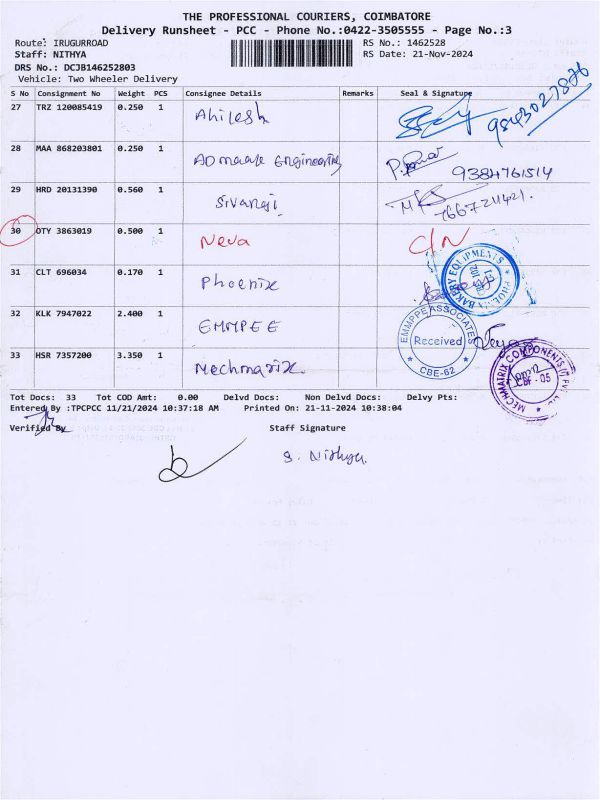 THE PROFESSIONAL COURIERS, COIMBATORE
Delivery Runsheet - PCC - Phone No.:0422-3505555 - Page No.:3
Route: IRUGURROAD
RS No.: 1462528
Staff: NITHYA
RS Date: 21-Nov-2024
DRS No.: DCJB146252803
Vehicle: Two Wheeler Delivery
S No Consignment No Weight PCS Consignee Details Remarks Seal & Signature
27 TRZ 120085419 0.250 1 Ahilesh 9843027876
28 MAA 868203801 0.250 1 ADmaark Engineering 9384761514
29 HRD 20131390 0.560 1 Sivanaji 7667211421.
30 OTY 3863019 0.500 1 Neva C/N
31 CLT 696034 0.170 1 Phoenix
PHOENIX BAKERY EQUIPMENTS
32 KLK 7947022 2.400 1 EMMPEE
EMMPPE ASSOCIATES
Received
CBE-62
33 HSR 7357200 3.350 1 Mechmatix
MECHMATRIX COMPONENTS (I) PVT
CBE - 05
Tot Docs: 33 Tot COD Amt: 0.00 Delvd Docs: Non Delvd Docs: Delvy Pts:
Entered By :TPCPCC 11/21/2024 10:37:18 AM Printed On: 21-11-2024 10:38:04
Verified By Staff Signature
S. Nithya.